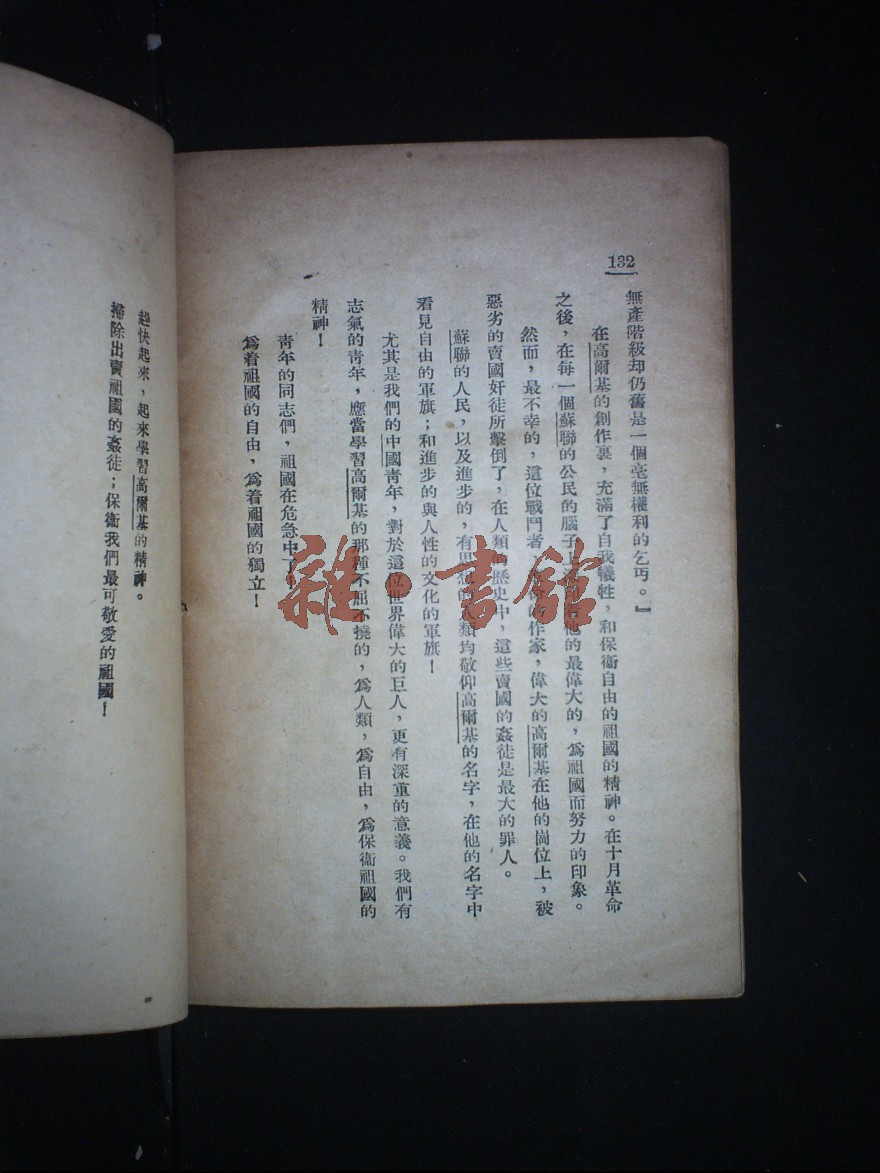 132
無產階級却仍舊是一個毫無權利的乞丐。』
在高爾基的創作裏，充滿了自我犧牲，和保衞自由的祖國的精神。在十月革命
之後，在每一個蘇聯的公民的腦子上他的最偉大的，爲祖國而努力的印象。
然而，最不幸的，這位戰鬥者、的作家，偉大的高爾基在他的崗位上，被
惡劣的賣國奸徒所擊倒了，在人類的歷史中，這些賣國的姦徒是最大的罪人。
蘇聯的人民，以及進步的，有思想的人類均敬仰高爾基的名字，在他的名字中
看見自由的軍旗；和進步的與人性的文化的軍旗！
尤其是我們的中國青年，對於這位世界偉大的巨人，更有深重的意義。我們有
志氣的青年，應當學習高爾基的那種不屈不撓的，爲人類，爲自由，爲保衞祖國的
精神！
青年的同志們，祖國在危急中了！
爲着祖國的自由，爲着祖國的獨立！
趕快起來，起來學習高爾基的精神。
掃除出賣祖國的姦徒；保衞我們最可敬愛的祖國！
雜·書館